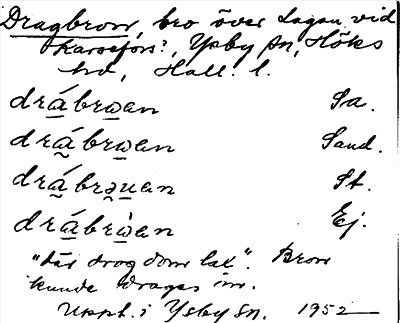 Dragbron, bro över Lagan vid
Karsefors?, Ysby sn, Höks
hd, Hall. l.
drábrωan Sa.
drábrωan Sand.
drábrəuan St.
drábrὼan Ej.
"där drog dom lax". Bron
kunde dragas in.
Uppt. i Ysby sn. 1952